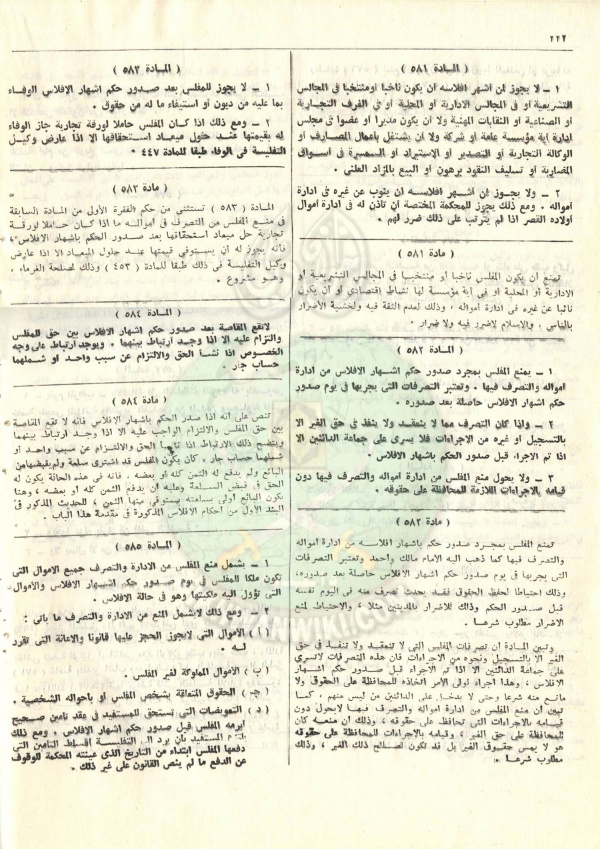 ٢٢٢
( المادة ٥٨١ )
١ – لا يجوز لمن أشهر افلاسه أن يكون ناخبا أو منتخبا في المجالس
التشريعية أو في المجالس الادارية أو المحلية أو في الغرف التجارية
أو الصناعية أو النقابات المهنية ولا أن يكون مديرا أو عضوا في مجلس
ادارة أية مؤسسة عامة أو شركة ولا أن يشتغل بأعمال المصارف أو
الوكالة التجارية أو التصدير أو الاستيراد أو السمسرة في أسواق
المضاربة أو تسليف النقود برهون أو البيع بالمزاد العلني .
٢ – ولا يجوز لمن أشهر افلاسه أن ينوب عن غيره في ادارة
أمواله . ومع ذلك يجوز للمحكمة المختصة أن تأذن له في ادارة أموال
أولاده القصر اذا لم يترتب على ذلك ضرر لهم .
( مادة ٥٨١ )
تمنع أن يكون المفلس ناخبا أو منتخبا في المجالس التشريعية أو
الادارية أو المحلية أو في أية مؤسسة لها نشاط اقتصادي أو أن يكون
نائبا عن غيره في ادارة أمواله ، وذلك لعدم الثقة فيه ولخشية الأضرار
بالناس . والاسلام لاضرر فيه ولا ضرار .
( المادة ٥٨٢ )
١ – يمنع المفلس بمجرد صدور حكم اشهار الافلاس من ادارة
أمواله والتصرف فيها . وتعتبر التصرفات التي يجريها في يوم صدور
حكم اشهار الافلاس حاصلة بعد صدوره .
٢ – واذا كان التصرف مما لا ينعقد ولا ينفذ في حق الغير الا
بالتسجيل أو غيره من الاجراءات فلا يسرى على جماعة الدائنين الا
اذا تم الاجراء قبل صدور الحكم باشهار الافلاس .
٣ – ولا يحول منع المفلس من ادارة أمواله والتصرف فيها دون
قيامه بالاجراءات اللازمة للمحافظة على حقوقه .
( مادة ٥٨٢ )
تمنع المفلس بمجرد صدور حكم باشهار افلاسه من ادارة أمواله
والتصرف فيها كما ذهب اليه الامام مالك وأحمد وتعتبر التصرفات
التي يجريها في يوم صدور حكم اشهار الافلاس حاصلة بعد صدوره،
وذلك احتياطا لحفظ الحقوق فقد يحدث تصرف منه في اليوم نفسه
قبل صدور الحكم وذلك للاضرار بالمدينين مثلا ، والاحتياط لمنع
الاضرار مطلوب شرعا .
وتبين المادة أن تصرفات المفلس التي لا تنعقد ولا تنفذ في حق
الغير الا بالتسجيل ونحوه من الاجراءات فان هذه التصرفات لاتسري
على جماعة الدائنين الا اذا تم الاجراء قبل صدور حكم اشهار
الافلاس ، وهذا اجراء لولي الأمر اتخاذه للمحافظة على الحقوق ولا
مانع منه شرعا وحتى لا يدخل على الدائنين من ليس منهم . كما
تبين أن منع المفلس من ادارة أمواله والتصرف فيها لايحول دون
قيامه بالاجراءات التي تحافظ على حقوقه ، وذلك أن منعه كان
للمحافظة على حق الغير ، وقيامه بالاجراءات للمحافظة على حقوقه
هو لا يمس حقوق الغير بل قد تكون لصالح ذلك الغير ، وذلك
مطلوب شرعا .
( المادة ٥٨٣ )
١ – لا يجوز للمفلس بعد صدور حكم اشهار الافلاس الوفاء
بما عليه من ديون أو استيفاء ما له من حقوق .
٢ – ومع ذلك اذا كان المفلس حاملا لورقة تجارية جاز الوفاء
له بقيمتها عند حلول ميعاد استحقاقها الا اذا عارض وكيل
التفليسة في الوفاء طبقا للمادة ٤٤٧ .
( مادة ٥٨٣ )
المادة ( ٥٨٣ ) تستثني من حكم الفقرة الأولى من المادة السابقة
في منع المفلس من التصرف في أمواله ما اذا كان حاملا لورقة
تجارية حل ميعاد استحقاقها بعد صدور الحكم باشهار الافلاس،
فانه يجوز له أن يستوفي قيمتها عند حلول الميعاد الا اذا عارض
وكيل التفليسة في ذلك طبقا للمادة ( ٤٥٣ ) وذلك لمصلحة الغرماء .
وهو مشروع .
( المادة ٥٨٤ )
لاتقع المقاصة بعد صدور حكم اشهار الافلاس بين حق للمفلس
والتزام عليه الا اذا وجد ارتباط بينهما . ويوجد ارتباط على وجه
الخصوص اذا نشأ الحق والالتزام عن سبب واحد أو شملهما
حساب جار .
( مادة ٥٨٤ )
تنص على أنه اذا صدر الحكم باشهار الافلاس فانه لا تقع المقاصة
بين حق المفلس والالتزام الواجب عليه الا اذا وجد ارتباط بينهما
ويتضح ذلك الارتباط اذا نشأ الحق والالتزام عن سبب واحد أو
شملهما حساب جار . كان يكون المفلس قد اشترى سلعة ولم يقبضها من
البائع ولم يدفع له الثمن كله أو بعضه . فانه في هذه الحالة يكون له
الحق في قبض السلعة وعليه أن يدفع الثمن كله أو بعضه ، وهنا
يكون البائع أولى بسلعته يستوفي منها الثمن ، للحديث المذكور في
البند الأول من أحكام الافلاس المذكورة في مقدمة هذا الباب .
( المادة ٥٨٥ )
١ – يشمل منع المفلس من الادارة والتصرف جميع الاموال التي
تكون ملكا للمفلس في يوم صدور حكم اشهار الافلاس والأموال
التي تؤول اليه ملكيتها وهو في حالة الافلاس .
٢ – ومع ذلك لايشمل المنع من الادارة والتصرف ما يأتي :
( أ ) الأموال التي لايجوز الحجز عليها قانونا والاعانة التي تقرر
له .
( ب ) الأموال المملوكة لغير المفلس .
( ج ) الحقوق المتعلقة بشخص المفلس أو بأحواله الشخصية .
( د ) التعويضات التي تستحق للمستفيد في عقد تأمين صحيح
أبرمه المفلس قبل صدور حكم اشهار الافلاس . ومع ذلك
يلتزم المستفيد بأن يرد الى التفليسة أقساط التأمين التي
دفعها المفلس ابتداء من التاريخ الذي عينته المحكمة للوقوف
عن الدفع ما لم ينص القانون على غير ذلك .